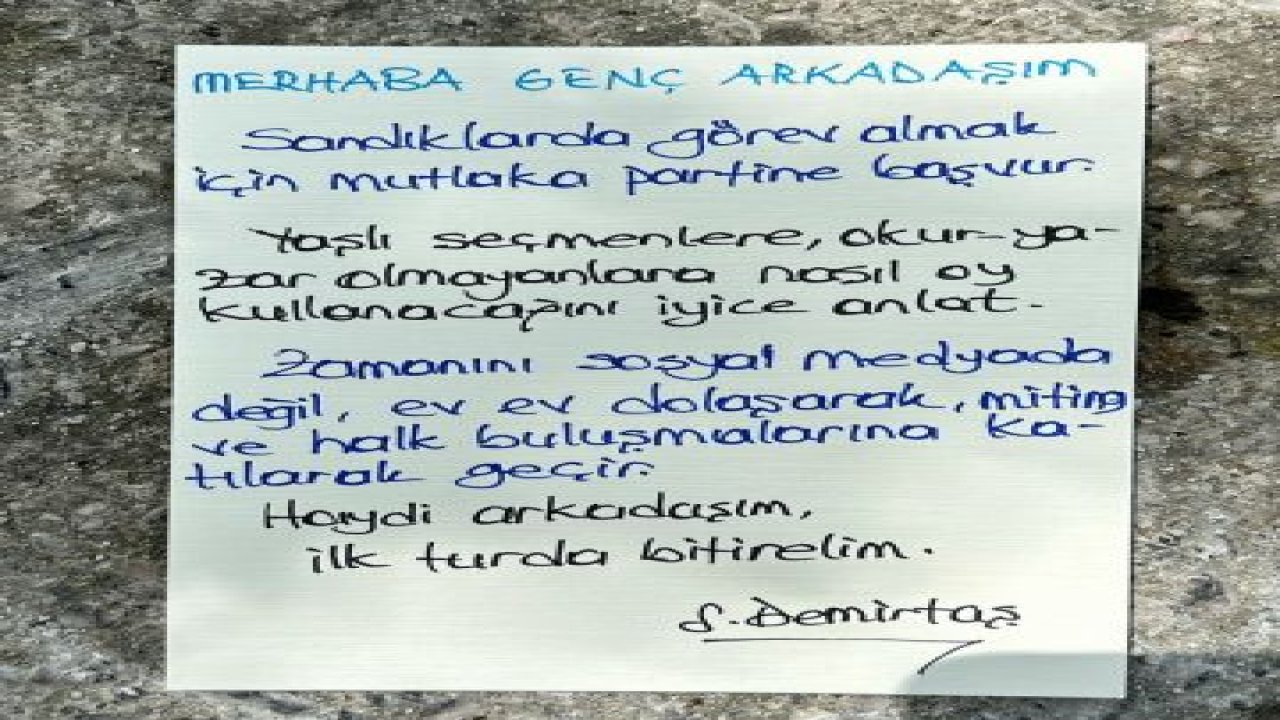 MERHABA GENÇ ARKADAŞIM
Sandıklarda görev almak
için mutlaka partine başvur.
Yaşlı seçmenlere, okur-ya-
zar olmayanlara nasıl oy
kullanacağını iyice anlat.
Zamanını sosyal medyada
değil, ev ev dolaşarak, miting
ve halk buluşmalarına ka-
tılarak geçir.
Haydi arkadaşım,
ilk turda bitirelim.
S. Demirtaş